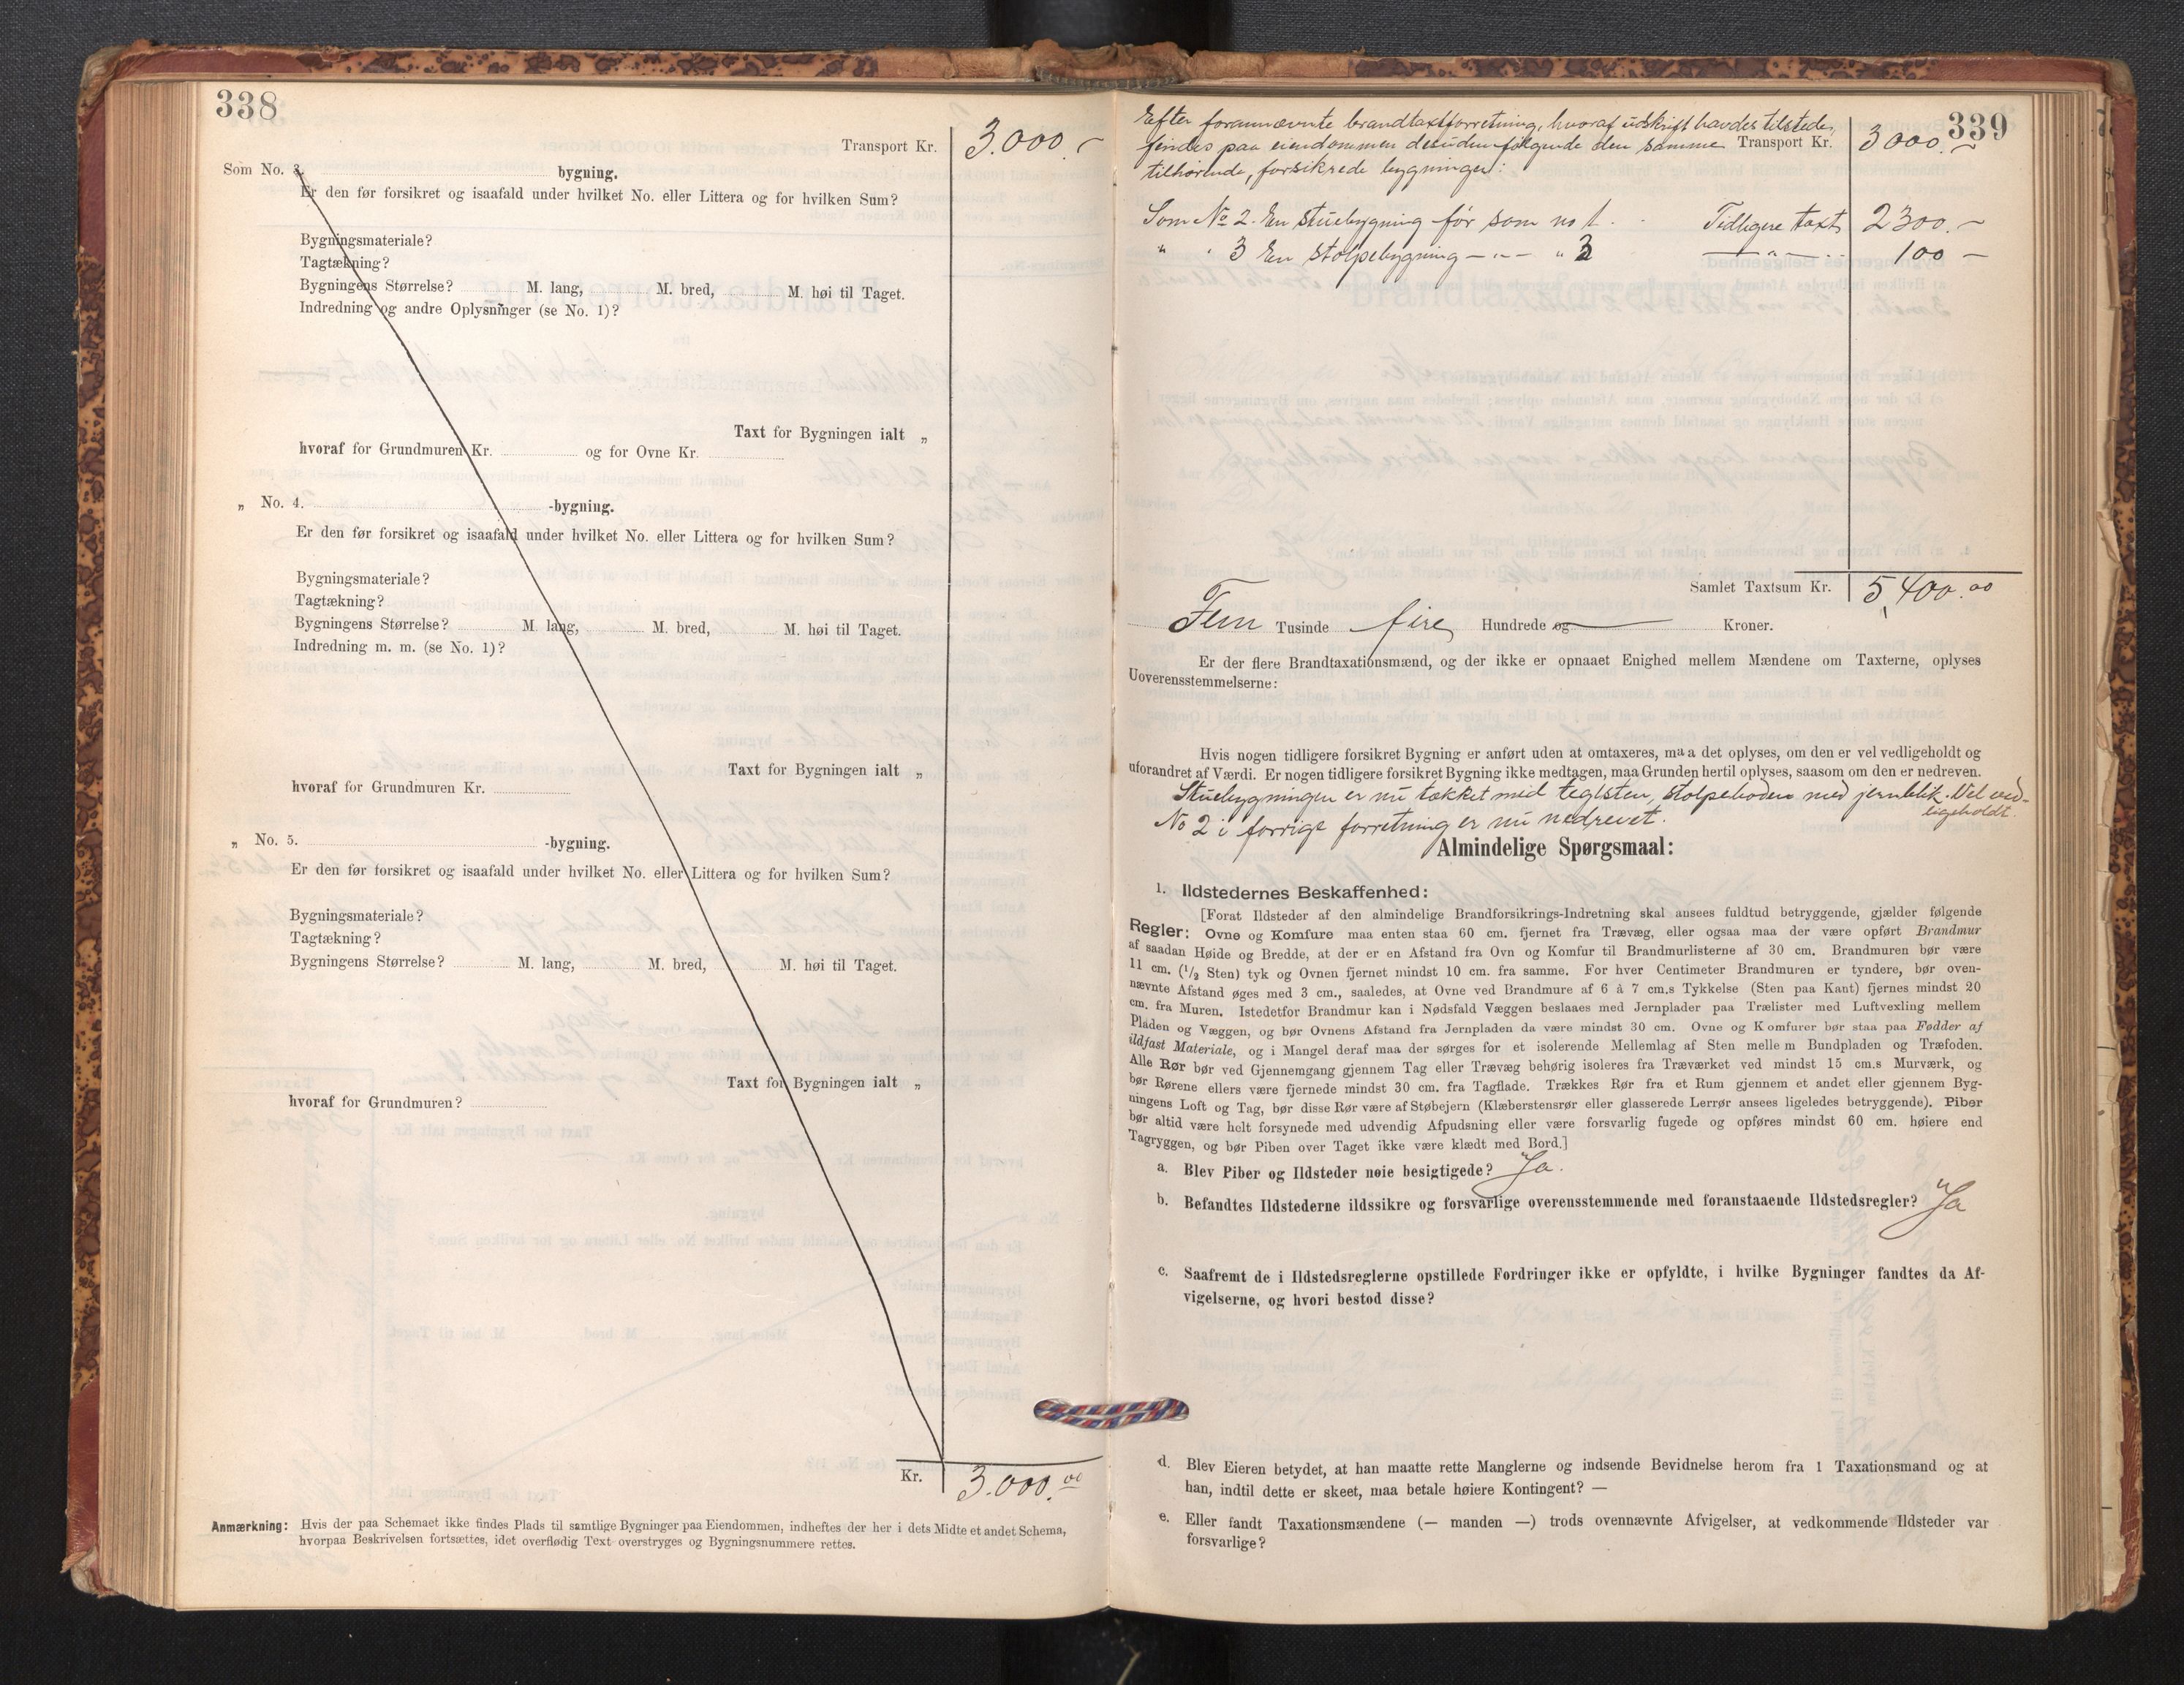 338
Transport Kr. 3.000.-
Som No. 3. bygning.
Er den før forsikret og isaafald under hvilket No. eller Littera og for hvilken Sum?
Bygningsmateriale?
Tagtækning?
Bygningens Størrelse? M. lang, M. bred, M. høi til Taget.
Indredning og andre Oplysninger (se No. 1)?
Taxt for Bygningen ialt „
hvoraf for Grundmuren Kr. og for Ovne Kr.
„ No. 4. -bygning.
Er den før forsikret og isaafald under hvilket No. eller Littera og for hvilken Sum?
Bygningsmateriale?
Tagtækning?
Bygningens Størrelse? M. lang, M. bred, M. høi til Taget.
Indredning m. m. (se No. 1)?
Taxt for Bygningen ialt „
hvoraf for Grundmuren Kr.
„ No. 5. -bygning.
Er den før forsikret og isaafald under hvilket No. eller Littera og for hvilken Sum?
Bygningsmateriale?
Tagtækning?
Bygningens Størrelse? M. lang, M. bred, M. høi til Taget.
Taxt for Bygningen ialt „
hvoraf for Grundmuren?
Kr. 3.000.00
Anmærkning: Hvis der paa Schemaet ikke findes Plads til samtlige Bygninger paa Eiendommen, indheftes der her i dets Midte et andet Schema,
hvorpaa Beskrivelsen fortsættes, idet overflødig Text overstryges og Bygningsnummere rettes.
339
Efter forannævnte brandtaxtforretning, hvoraf udskrift havdes tilstede,
findes paa eiendommen desuden følgende den samme Transport Kr. 3000.-
tilhørende, forsikrede bygninger:
Som No 2. En stuebygning før som no 1. Tidligere taxt 2300.-
" " 3 En stolpebygning -"- " 3 -"- 100 -
Samlet Taxtsum Kr. 5,400.00
Fem Tusinde fire Hundrede og Kroner.
Er der flere Brandtaxationsmænd, og der ikke er opnaaet Enighed mellem Mændene om Taxterne, oplyses
Uoverensstemmelserne:
Hvis nogen tidligere forsikret Bygning er anført uden at omtaxeres, maa det oplyses, om den er vel vedligeholdt og
uforandret af Værdi. Er nogen tidligere forsikret Bygning ikke medtagen, maa Grunden hertil oplyses, saasom om den er nedreven.
Stuebygningen er nu tækket med teglsten, stolpeboden med jernblik. Vel ved-
ligeholdt.
No 2 i forrige forretning er nu nedrevet.
Almindelige Spørgsmaal:
1. Ildstedernes Beskaffenhed:
[Forat Ildsteder af den almindelige Brandforsikrings-Indretning skal ansees fuldtud betryggende, gjælder følgende
Regler: Ovne og Komfure maa enten staa 60 cm. fjernet fra Trævæg, eller ogsaa maa der være opført Brandmur
af saadan Høide og Bredde, at der er en Afstand fra Ovn og Komfur til Brandmurlisterne af 30 cm. Brandmuren bør være
11 cm. (1/2 Sten) tyk og Ovnen fjernet mindst 10 cm. fra samme. For hver Centimeter Brandmuren er tyndere, bør oven-
nævnte Afstand øges med 3 cm., saaledes, at Ovne ved Brandmure af 6 à 7 cm.s Tykkelse (Sten paa Kant) fjernes mindst 20
cm. fra Muren. Istedetfor Brandmur kan i Nødsfald Væggen beslaaes med Jernplader paa Trælister med Luftvexling mellem
Pladen og Væggen, og bør Ovnens Afstand fra Jernpladen da være mindst 30 cm. Ovne og Komfurer bør staa paa Fødder af
ildfast Materiale, og i Mangel deraf maa der sørges for et isolerende Mellemlag af Sten mellem Bundpladen og Træfoden.
Alle Rør bør ved Gjennemgang gjennem Tag eller Trævæg behørig isoleres fra Træværket ved mindst 15 cm.s Murværk, og
bør Rørene ellers være fjernede mindst 30 cm. fra Tagflade. Trækkes Rør fra et Rum gjennem et andet eller gjennem Byg-
ningens Loft og Tag, bør disse Rør være af Støbejern (Klæberstensrør eller glasserede Lerrør ansees ligeledes betryggende). Piber
bør altid være helt forsynede med udvendig Afpudsning eller være forsvarlig fugede og opføres mindst 60 cm. høiere end
Tagryggen, og bør Piben over Taget ikke være klædt med Bord.]
a. Blev Piber og Ildsteder nøie besigtigede? Ja.
b. Befandtes Ildstederne ildssikre og forsvarlige overensstemmende med foranstaaende Ildstedsregler? Ja
c. Saafremt de i Ildstedsreglerne opstillede Fordringer ikke er opfyldte, i hvilke Bygninger fandtes da Af-
vigelserne, og hvori bestod disse?
d. Blev Eieren betydet, at han maatte rette Manglerne og indsende Bevidnelse herom fra 1 Taxationsmand og at
han, indtil dette er skeet, maa betale høiere Kontingent? —
e. Eller fandt Taxationsmændene (— manden —) trods ovennævnte Afvigelser, at vedkommende Ildsteder var
forsvarlige?